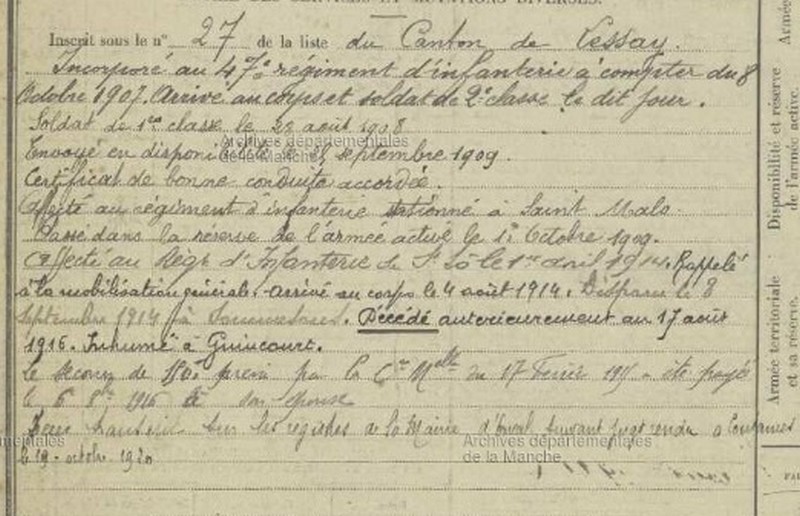 DES SERVICES ET MUTATIONS DIVERSES.
Inscrit sous le n° 27 de la liste du Canton de Lessay.
Incorporé au 47e régiment d'infanterie à compter du 8
Octobre 1907. Arrivé au corps et soldat de 2e classe le dit jour.
Soldat de 1re classe le 28 août 1908
Envoyé en disponibilité le septembre 1909.
Certificat de bonne conduite accordé.
Affecté au régiment d'infanterie stationné à Saint Malo.
Passé dans la réserve de l'armée active le 1er Octobre 1909.
Affecté au Régt d'Infanterie de St Lô le 1er avril 1914. Rappelé
à la mobilisation générale. Arrivé au corps le 4 août 1914. Disparu le 8
septembre 1914 à Sommesous. Décédé antérieurement au 17 août
1916. Inhumé à Guincourt.
Le secours de 150 prévu par la Cre Mlle du 17 Février 1915 a été payé
le 6 1916 à son épouse
sur les registres de la Mairie suivant jugt rendu à Coutances
le 19 octobre 1920
Archives départementales
de la Manche
Archives départementales
de la Manche
Disponibilité et réserve
de l'armée active.
Armée territoriale
et sa réserve.